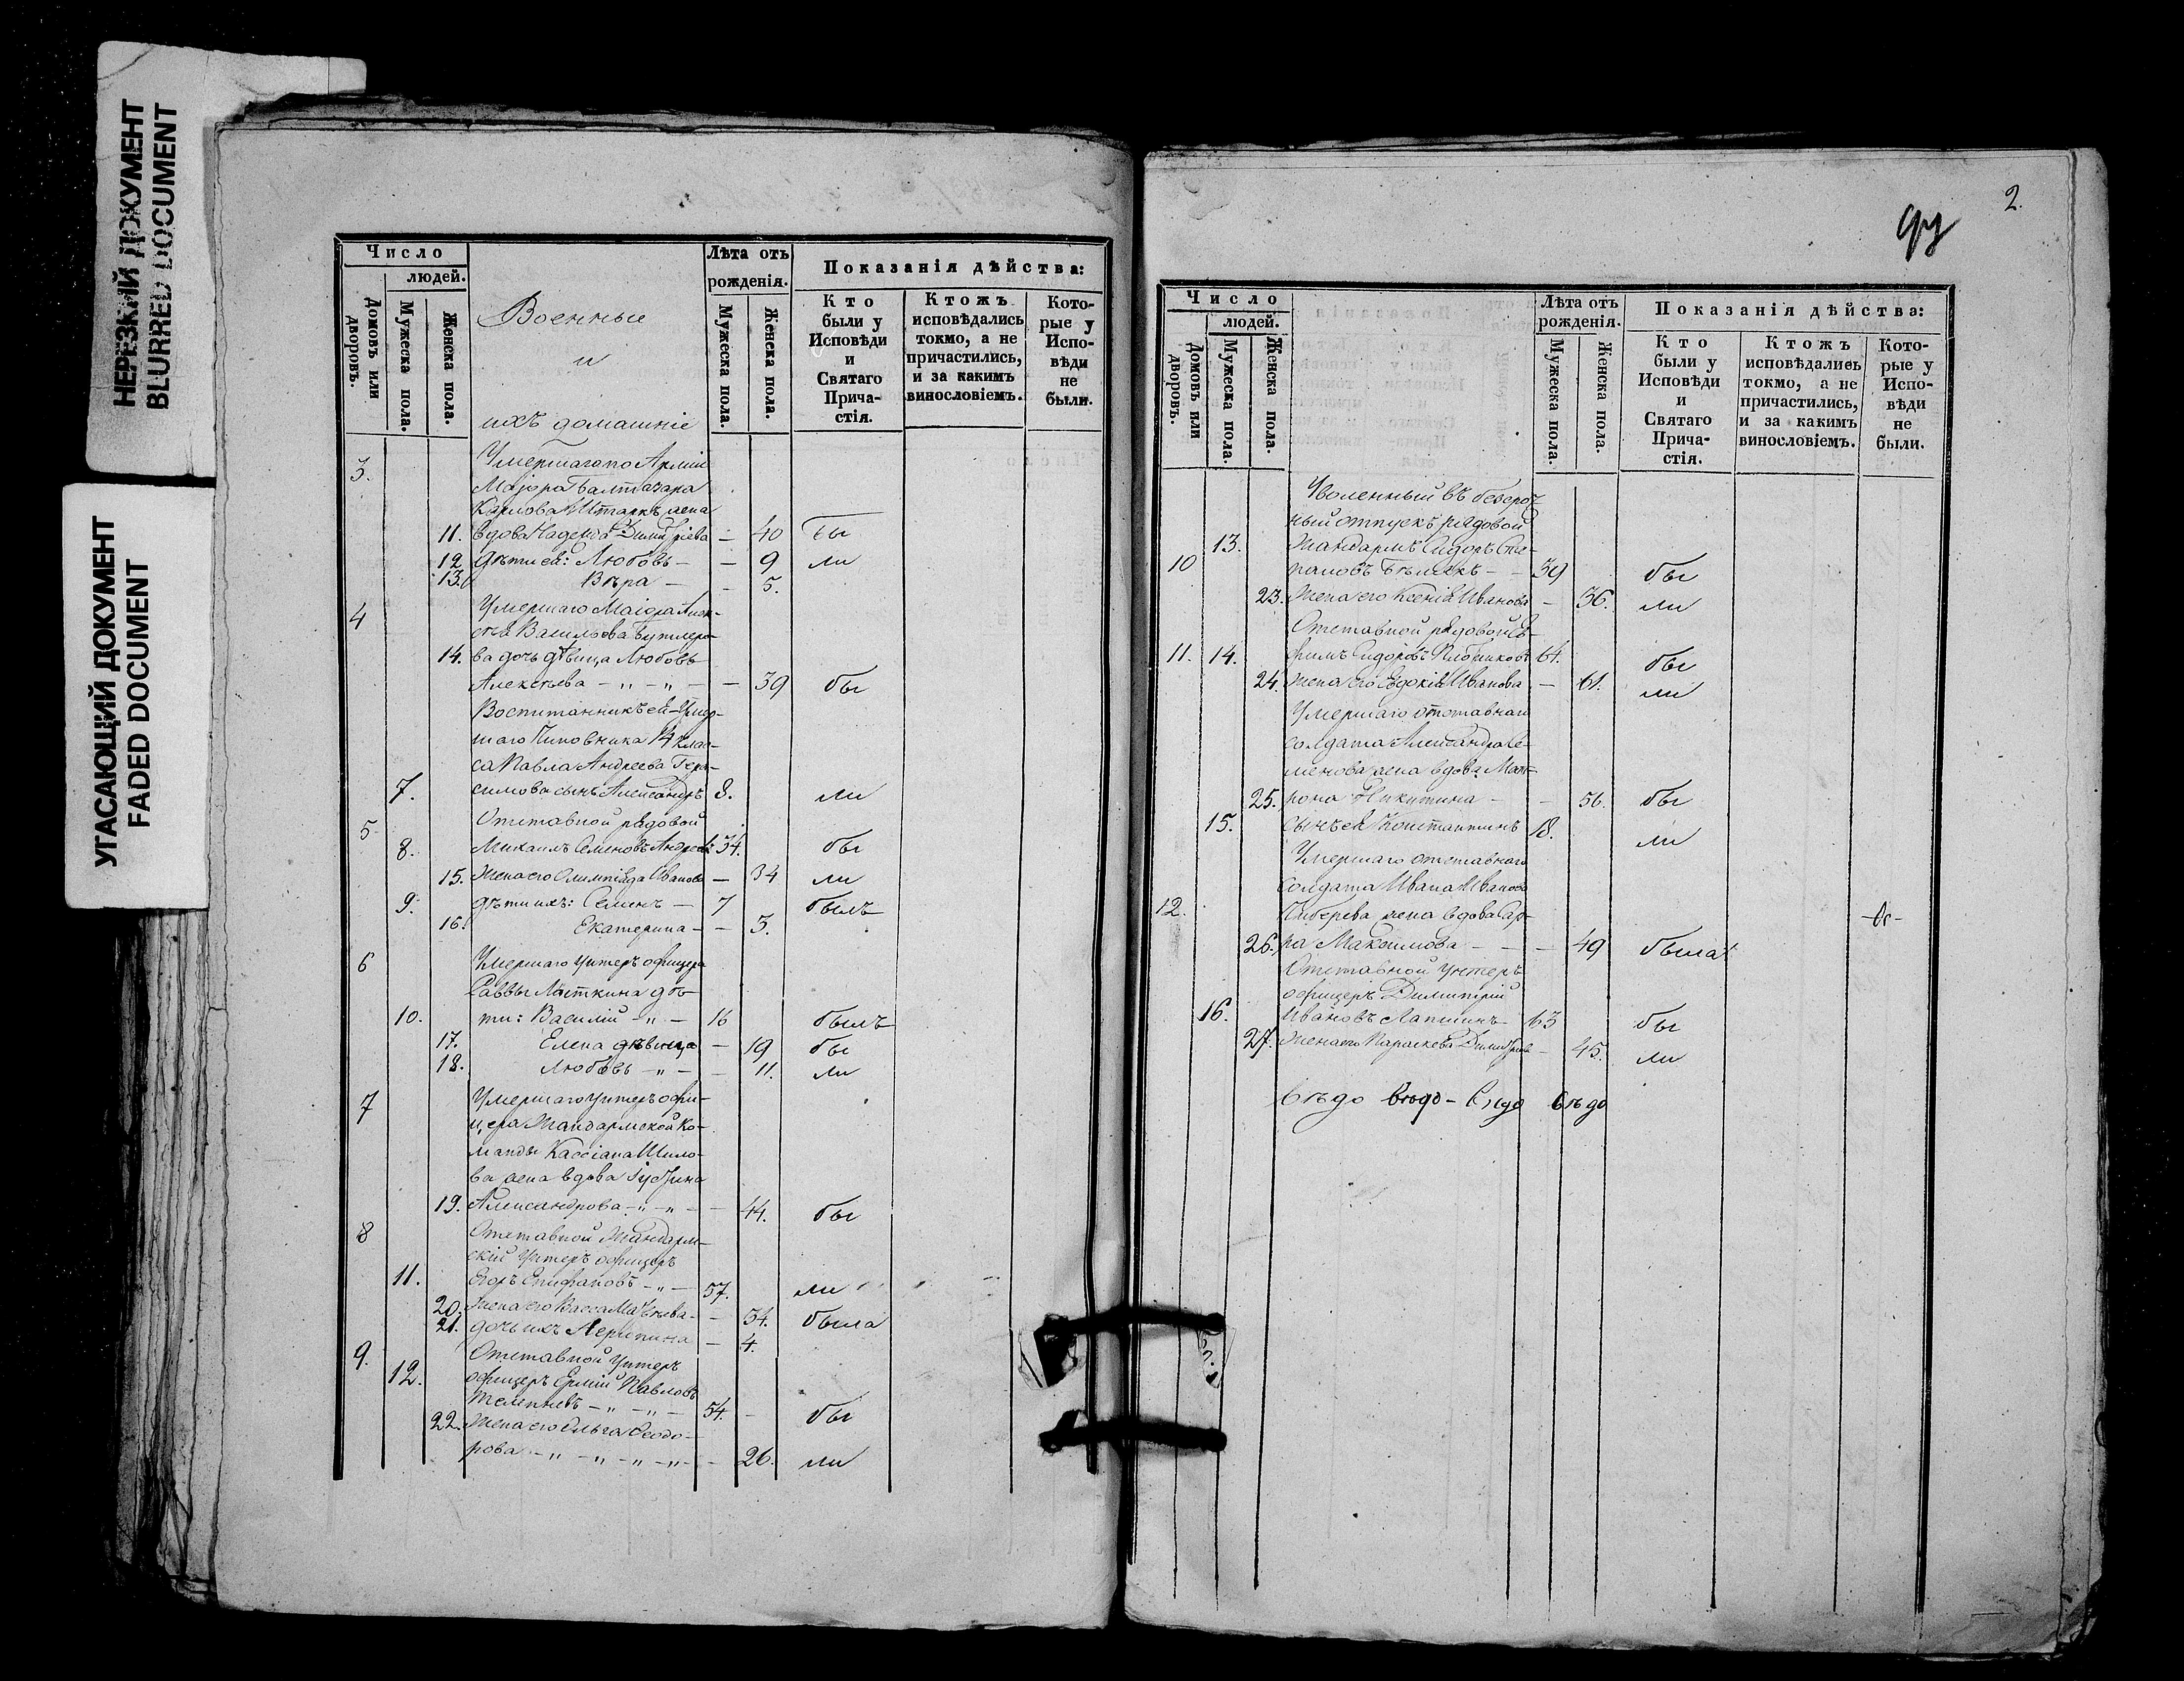 НЕРЕЗКИЙ ДОКУМЕНТ
BLURRED DOCUMENT
УГАСАЮЩИЙ ДОКУМЕНТ
FADED DOCUMENT
Число
людей.
Домовъ или дворовъ.
Мужеска пола.
Женска пола.
Военные
и
ихъ домашніе
Лѣта отъ
рожденія.
Мужеска пола.
Женска пола.
Показанія дѣйства:
Кто
были у
Исповѣди
и
Святаго
Прича-
стія.
Ктожъ
исповѣдались
токмо, а не
причастились,
и за какимъ
винословіемъ.
Кото-
рые у
Испо-
вѣди
не
были.
3. Умершаго по Арміи
Маіора Балтазара
Карлова Штаркъ жена
11. вдова Надежда Димитріева — 40 бы
12. дѣти ея: Любовь — — 9 ли
13. Вѣра — — 5.
4 Умершаго Маіора Алек-
сѣя Васильева Бутлеро-
14. ва дочь дѣвица Любовь
Алексѣева — „ — „ — — 39 бы
Воспитанникъ ея — Умер-
шаго Чиновника 14 клас-
са Павла Андреева Гера-
7. симова сынъ Александръ 8. ли
5 Отставной рядовой
8. Михаилъ Семеновъ Андреевъ 34. бы
15. Жена его Олимпіада Иванова — 34 ли
9. дѣти ихъ: Семенъ — 7 былъ
16. Екатерина — — 3.
6 Умершаго Унтеръ офицера
Саввы Ласткина дѣ-
10. ти: Василій — „ — 16 былъ
17. Елена дѣвица — 19 бы
18. Любовь — „ — — 11. ли
7 Умершаго Унтеръ офи-
цера Жандармской Ко-
манды Кассіана Шило-
ва жена вдова Іустина
19. Александрова — „ — „ — — 44. бы
8 Отставной Жандарм-
скій Унтеръ офицеръ
11. Егоръ Епифановъ — „ — 57. ли
20. Жена его Васса Матвѣева — — 34. была
21. дочь ихъ Агрипина — 4.
9. Отставной Унтеръ
12. офицеръ Ермій Павловъ
— „ — „ — 54. — бы
22. Жена его Ольга Ѳеодо-
рова — „ — „ — „ — „ — — 26. ли
2.
Число
людей.
Домовъ или дворовъ.
Мужеска пола.
Женска пола.
Лѣта отъ
рожденія.
Мужеска пола.
Женска пола.
Показанія дѣйства:
Кто
были у
Исповѣди
и
Святаго
Прича-
стія.
Ктожъ
исповѣдались
токмо, а не
причастились,
и за какимъ
винословіемъ.
Кото-
рые у
Испо-
вѣди
не
были.
Уволенный въ безсроч-
ный отпускъ рядовой
13. Жандармъ Сидоръ Сте-
10 пановъ — — 39 бы
23. Жена его Ксенія Иванова — 36. ли
Отставной рядовой Е-
11. 14. фимъ Сидоровъ 64. бы
24. Жена его Евдокія Иванова — 61. ли
Умершаго отставнаго
солдата Александра Се-
менова жена вдова Мат-
25. рона Никитина — — 56. бы
15. сынъ ея Константинъ 18. ли
Умершаго отставнаго
солдата Ивана Иванова
12. жена вдова Сар-
26. ра Максимова — — — 49 была
Отставной Унтеръ
офицеръ Димитрій
16. Ивановъ Лапшинъ 63 бы
27. Жена его Параскева Димитріева — 45. ли